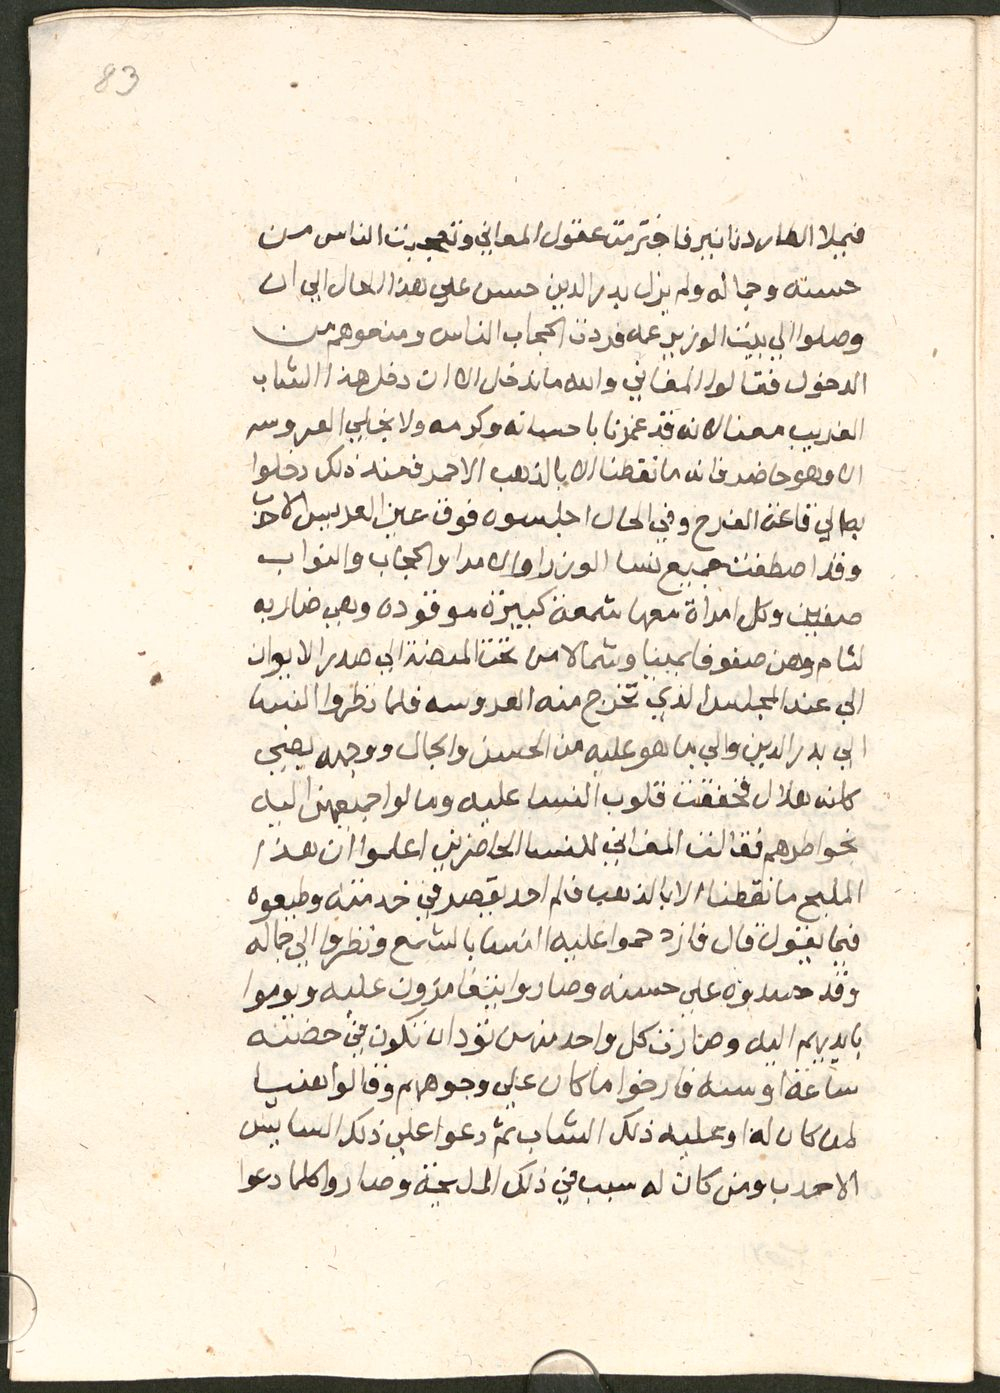 83
فيملا الطار دنانير فاخترمت عقول المغاني وتعجبت الناس من
حسنه وجماله ولم يزل بدر الدين حسن علي هذا الحال الي ان
وصلوا الي بيت الوزير عمه فردت الحجاب الناس ومنعوهم من
الدخول فقالوا المغاني والله ما ندخل الا ان دخل هذا الشاب
الغريب معنا لانه قد غمرنا باحسانه وكرمه ولا نجلي العروسه
الا وهو حاضر فانه ما نقطنا الا بالذهب الاحمر فعند ذلك دخلوا
به الي قاعة الفرح وفي الحال اجلسوه فوق عين العريس الاحدب
وقد اصطفت جميع نسا الوزرا والامرا والحجاب والنواب
صفين وكل امراة معها شمعة كبيرة موقوده وهي ضاربه
لثام وهن صفوفا يمينا وشمالا من تحت المنصة الي صدر الايوان
الي عند المجلس الذي تخرج منه العروسه فلما نظروا النسا
الي بدر الدين والي ما هو عليه من الحسن والجمال ووجهه يضي
كانه هلال فخفقت قلوب النسا عليه ومالوا جميعهن اليه
بخواطرهم فقالت المغاني للنسا الحاضرين اعلموا ان هذا
المليح ما نقطنا الا بالذهب فلم احد يقصر في خدمته وطيعوه
فيما يقول قال فازدحموا عليه النسا بالشمع ونظروا الي جماله
وقد حسدوه علي حسنه وصاروا يتغامزون عليه ويوموا
بايديهم اليه وصارت كل واحد منهن تود ان تكون في حضنه
ساعة او سنه فارخوا ما كان علي وجوههم وقالوا هنيا
لمن كان له او عليه ذلك الشاب ثم دعوا علي ذلك السايس
الاحدب ومن كان له سبب في ذلك المليحة وصاروا كلما دعوا